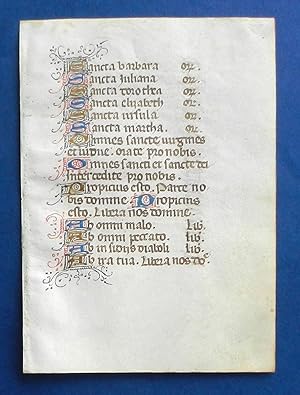 Sancta barbara or.
Sancta Iuliana or.
Sancta dorothea or.
Sancta elizabeth or.
Sancta ursula or.
Sancta martha. or.
Omnes sancte virgines
et vidue. Orate pro nobis.
Omnes sancti et sancte dei
intercedite pro nobis.
Propicius esto. Parce no
bis domine. Propicius
esto. Libera nos domine.
Ab omni malo. lib.
Ab omni peccato. lib.
Ab insidiis diaboli lib.
Ab ira tua. Libera nos do